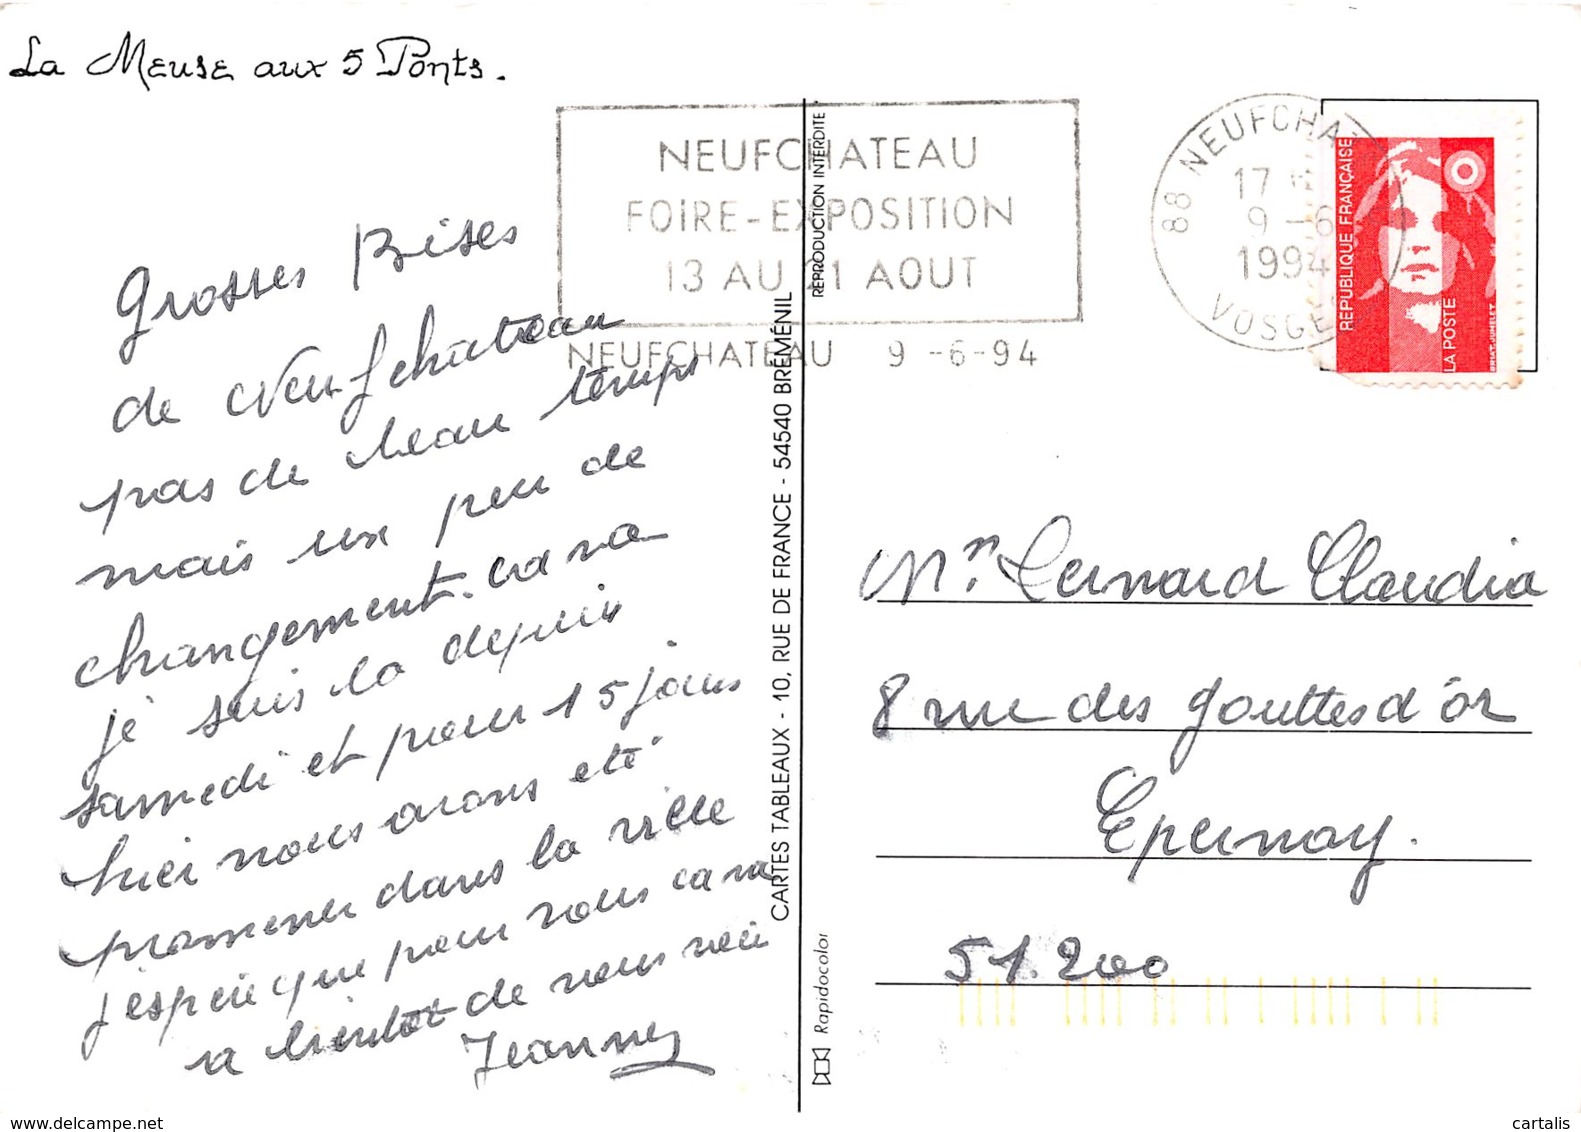 La Meuse aux 5 Ponts.
NEUFCHATEAU
FOIRE-EXPOSITION
13 AU 21 AOUT
NEUFCHATEAU 9-6-94
88 NEUFCHATEAU
17
9-6
1994
VOSGES
RÉPUBLIQUE FRANÇAISE
LA POSTE
BRIAT-JUMELET
Grosses Bises
de Neufchateau
pas de beau temps
mais un peu de
changement. ca va
je suis la depuis
samedi et pour 15 jours
hier nous avons eté
promener dans la ville
j'espere que pour vous ca va
a bientot de vous voir
Jeannes
CARTES TABLEAUX - 10, RUE DE FRANCE - 54540 BRÉMÉNIL
REPRODUCTION INTERDITE
Rapidocolor
Mr. Lernard Claudia
8 rue des gouttes d'òr
Epernay.
51.200
www.delcampe.net
cartalis